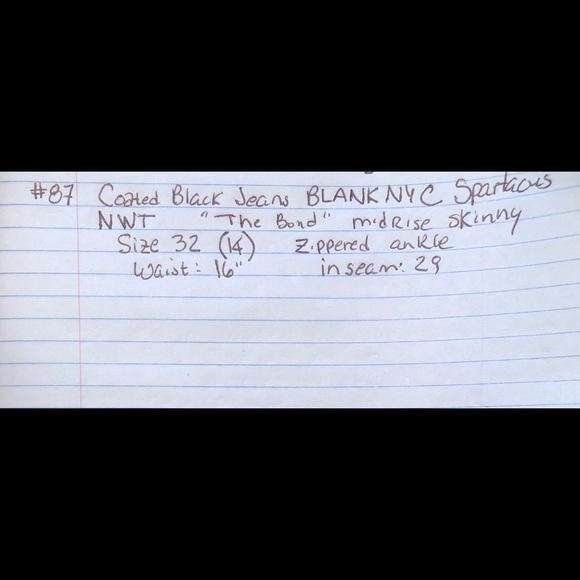 #87 Coated Black Jeans BLANKNYC Spartacus
NWT "The Bond" midRise skinny
Size 32 (14) Zippered ankle
Waist: 16" inseam: 29